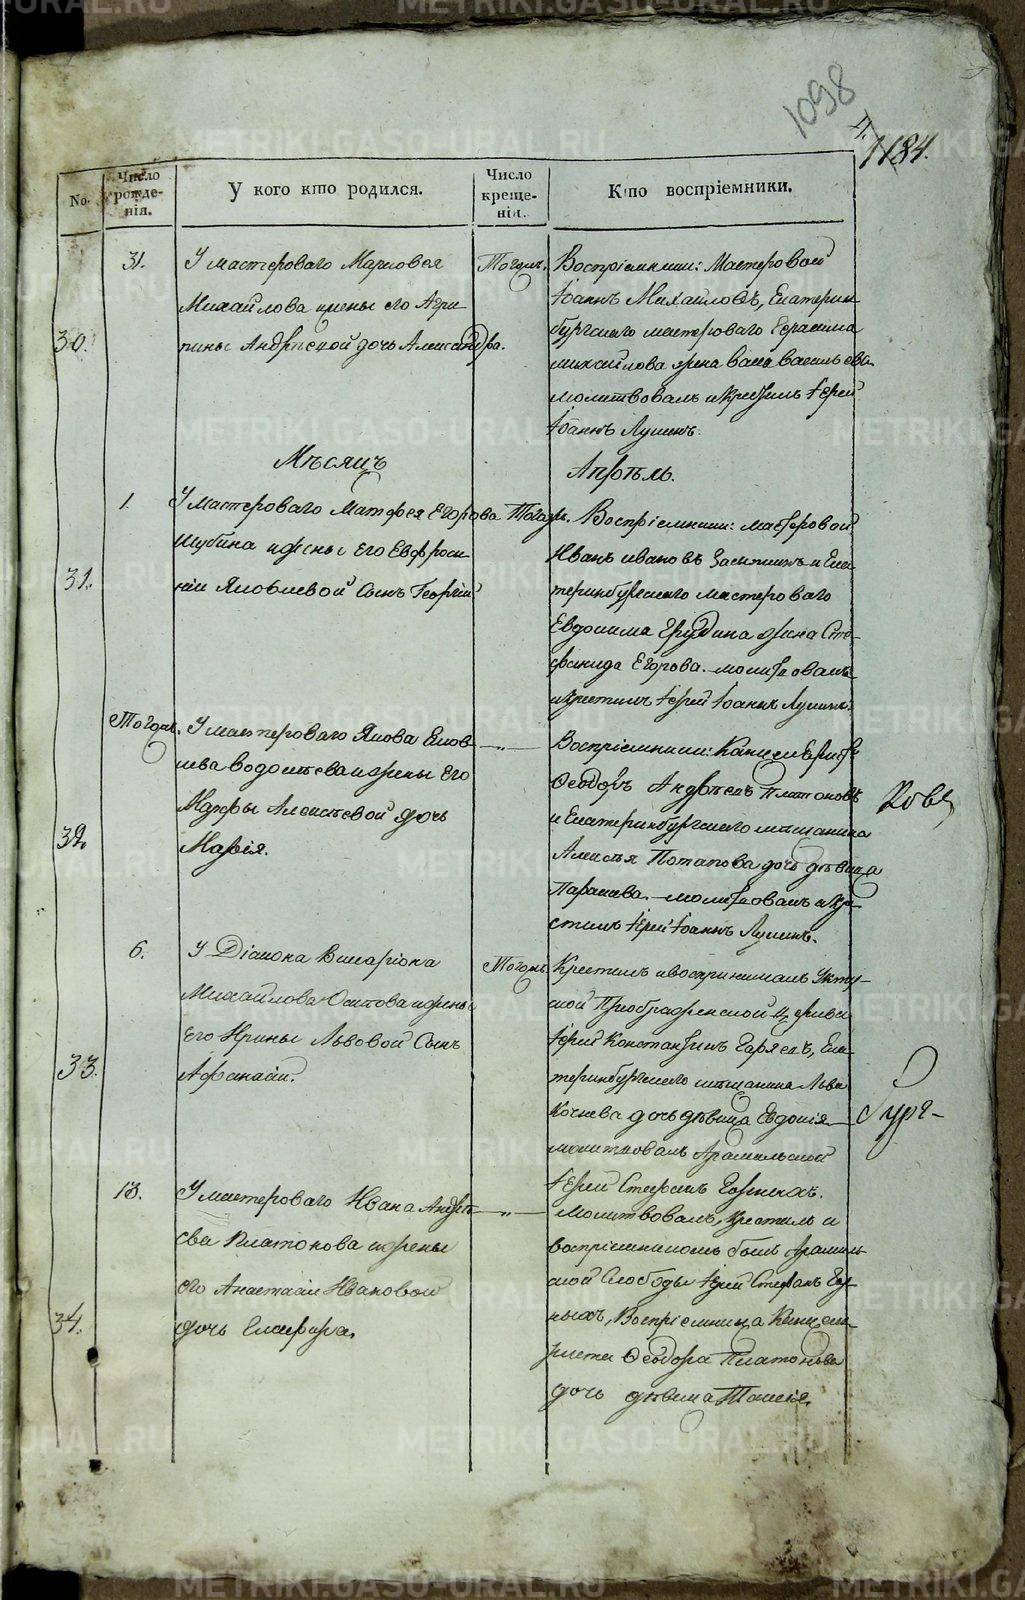 1098
1184.
No.
Число рожде-нія.
У кого кто родился.
Число креще-нія.
Кто воспріемники.
30.
31.
У мастероваго
Михайлова жены его Агри-
пины Андреевой дочь Александра.
Тогожъ.
Воспріемники: Мастеровой
Іоаннъ Михайловъ, Екатерин-
бургскаго мастероваго Герасима
Михайлова жена Васильева
молитвовалъ и крестилъ Іерей
Іоаннъ Лукинъ.
Мѣсяцъ
Апрѣль.
31.
1.
У мастероваго Матфея Егорова
Шубина и жены его Евфроси-
ніи Яковлевой Сынъ Георгій
Тогожъ.
Воспріемники: мастеровой
Иванъ Ивановъ и Ека-
теринбургскаго мастероваго
Евдокима жена Сте-
фанида Егорова. молитвовалъ
и крестилъ Іерей Іоаннъ Лукинъ.
32.
Тогожъ.
У мастероваго Якова
и жены Его
Марфы Алексѣевой дочь
Марія.
— „ —
Воспріемники: Канцеляристъ
Ѳеодоръ Андрѣевъ Платоновъ
и Екатеринбургскаго мѣщанина
Алексѣя Потапова дочь дѣвица
молитвовалъ и кре-
стилъ Іерей Іоаннъ Лукинъ.
33.
6.
У Діакона Виссаріона
Михайлова Осипова и жены
Его Ирины Львовой Сынъ
Афанасій.
Тогожъ.
Крестилъ и воспринималъ Укту-
ской Преображенской Церкви
Іерей Константинъ Ека-
теринбургскаго мѣщанина Льва
Кочнева дочь дѣвица Евдокія
молитвовалъ Арамильской
Іерей Стефанъ Горныхъ.
34.
13.
У мастероваго Ивана Андре-
ева Платонова и жены
его Анастасіи Ивановой
дочь Гликерія.
— „ —
Молитвовалъ, крестилъ и
воспріемникомъ былъ Арамиль-
ской Слободы Іерей Стефанъ Гор-
ныхъ, Воспріемница Канцеля-
риста Ѳеодора Платонова
дочь дѣвица Таисія.
METRIKI.GASO-URAL.RU